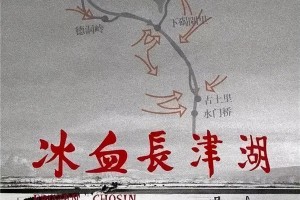 下碣隅里
德洞岭
古土里
水门桥
冰血長津湖
CHOSIN